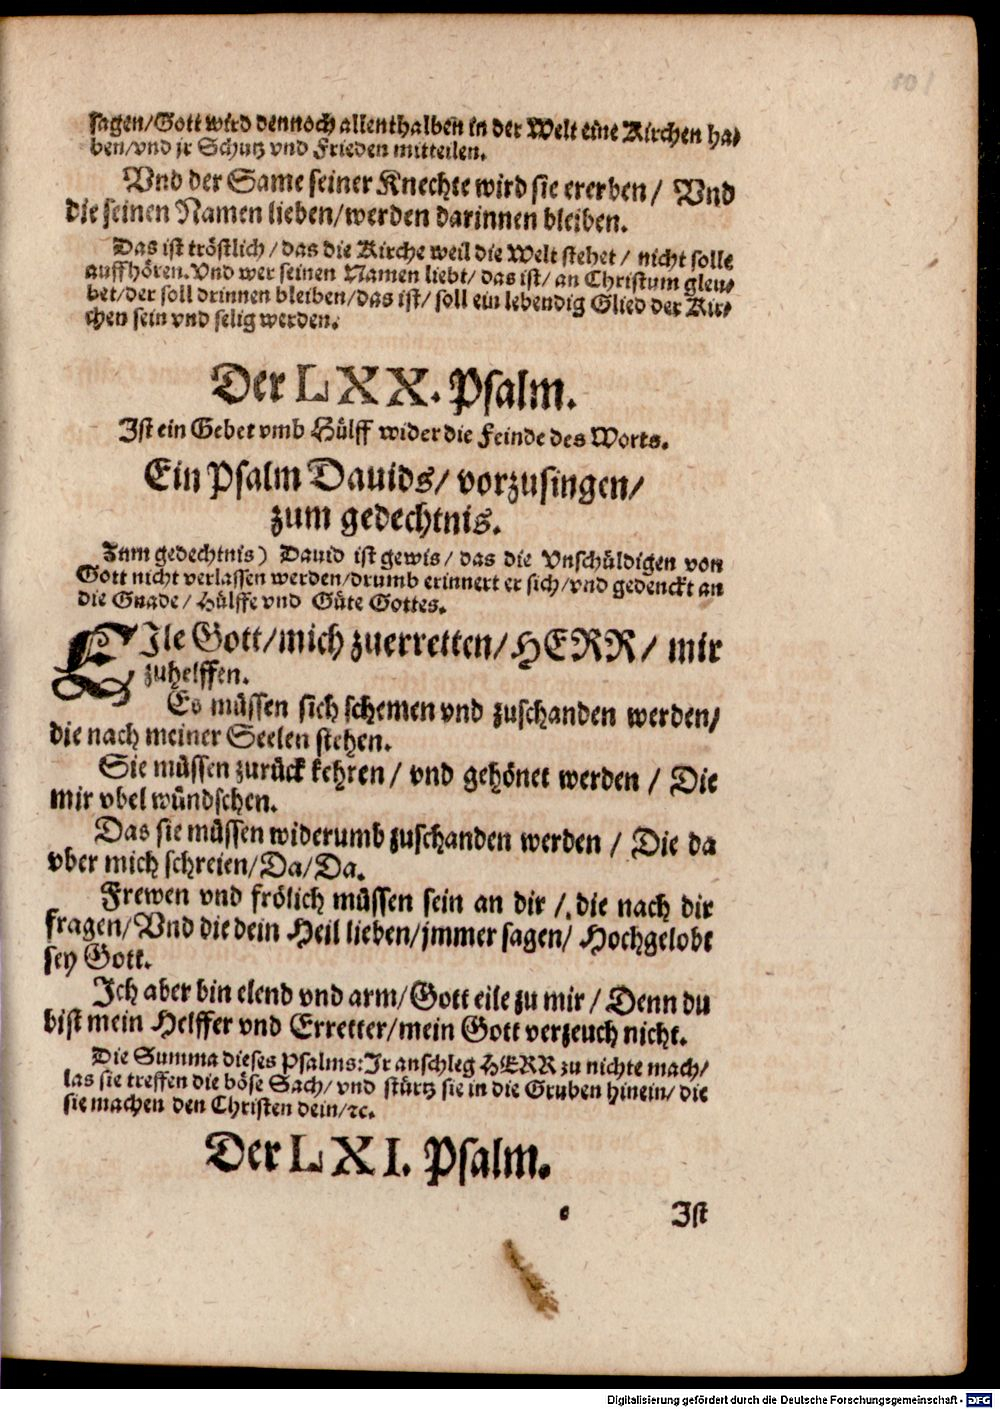 101
sagen/Gott wird dennoch allenthalben in der Welt eine Kirchen ha-
ben/vnd jr Schutz vnd Frieden mitteilen.
Vnd der Same seiner Knechte wird sie ererben / Vnd
die seinen Namen lieben/werden darinnen bleiben.
Das ist tröstlich / das die Kirche weil die Welt stehet / nicht solle
auffhören. Vnd wer seinen Namen liebt / das ist / an Christum gleu-
bet/der soll drinnen bleiben/das ist/ soll ein lebendig Glied der Kir-
chen sein vnd selig werden.
Der LXX. Psalm.
Ist ein Gebet vmb Hülff wider die Feinde des Worts.
Ein Psalm Dauids/ vorzusingen/
zum gedechtnis.
Zum gedechtnis) Dauid ist gewis / das die Vnschüldigen von
Gott nicht verlassen werden/drumb erinnert er sich/vnd gedenckt an
die Gnade / Hülffe vnd Güte Gottes.
EIle Gott/mich zuerretten/HERR/ mir
zuhelffen.
Es müssen sich schemen vnd zuschanden werden/
die nach meiner Seelen stehen.
Sie müssen zurück kehren / vnd gehönet werden / Die
mir vbel wündschen.
Das sie müssen widerumb zuschanden werden / Die da
vber mich schreien/Da/Da.
Frewen vnd frölich müssen sein an dir / die nach dir
fragen/Vnd die dein Heil lieben/jmmer sagen/ Hochgelobt
sey Gott.
Ich aber bin elend vnd arm/Gott eile zu mir / Denn du
bist mein Helffer vnd Erretter/mein Gott verzeuch nicht.
Die Summa dieses Psalms: Ir anschleg HERR zu nichte mach/
las sie treffen die böse Sach/ vnd stürtz sie in die Gruben hinein/ die
sie machen den Christen dein/ꝛc.
Der LXI. Psalm.
Ist
Digitalisierung gefördert durch die Deutsche Forschungsgemeinschaft - DFG